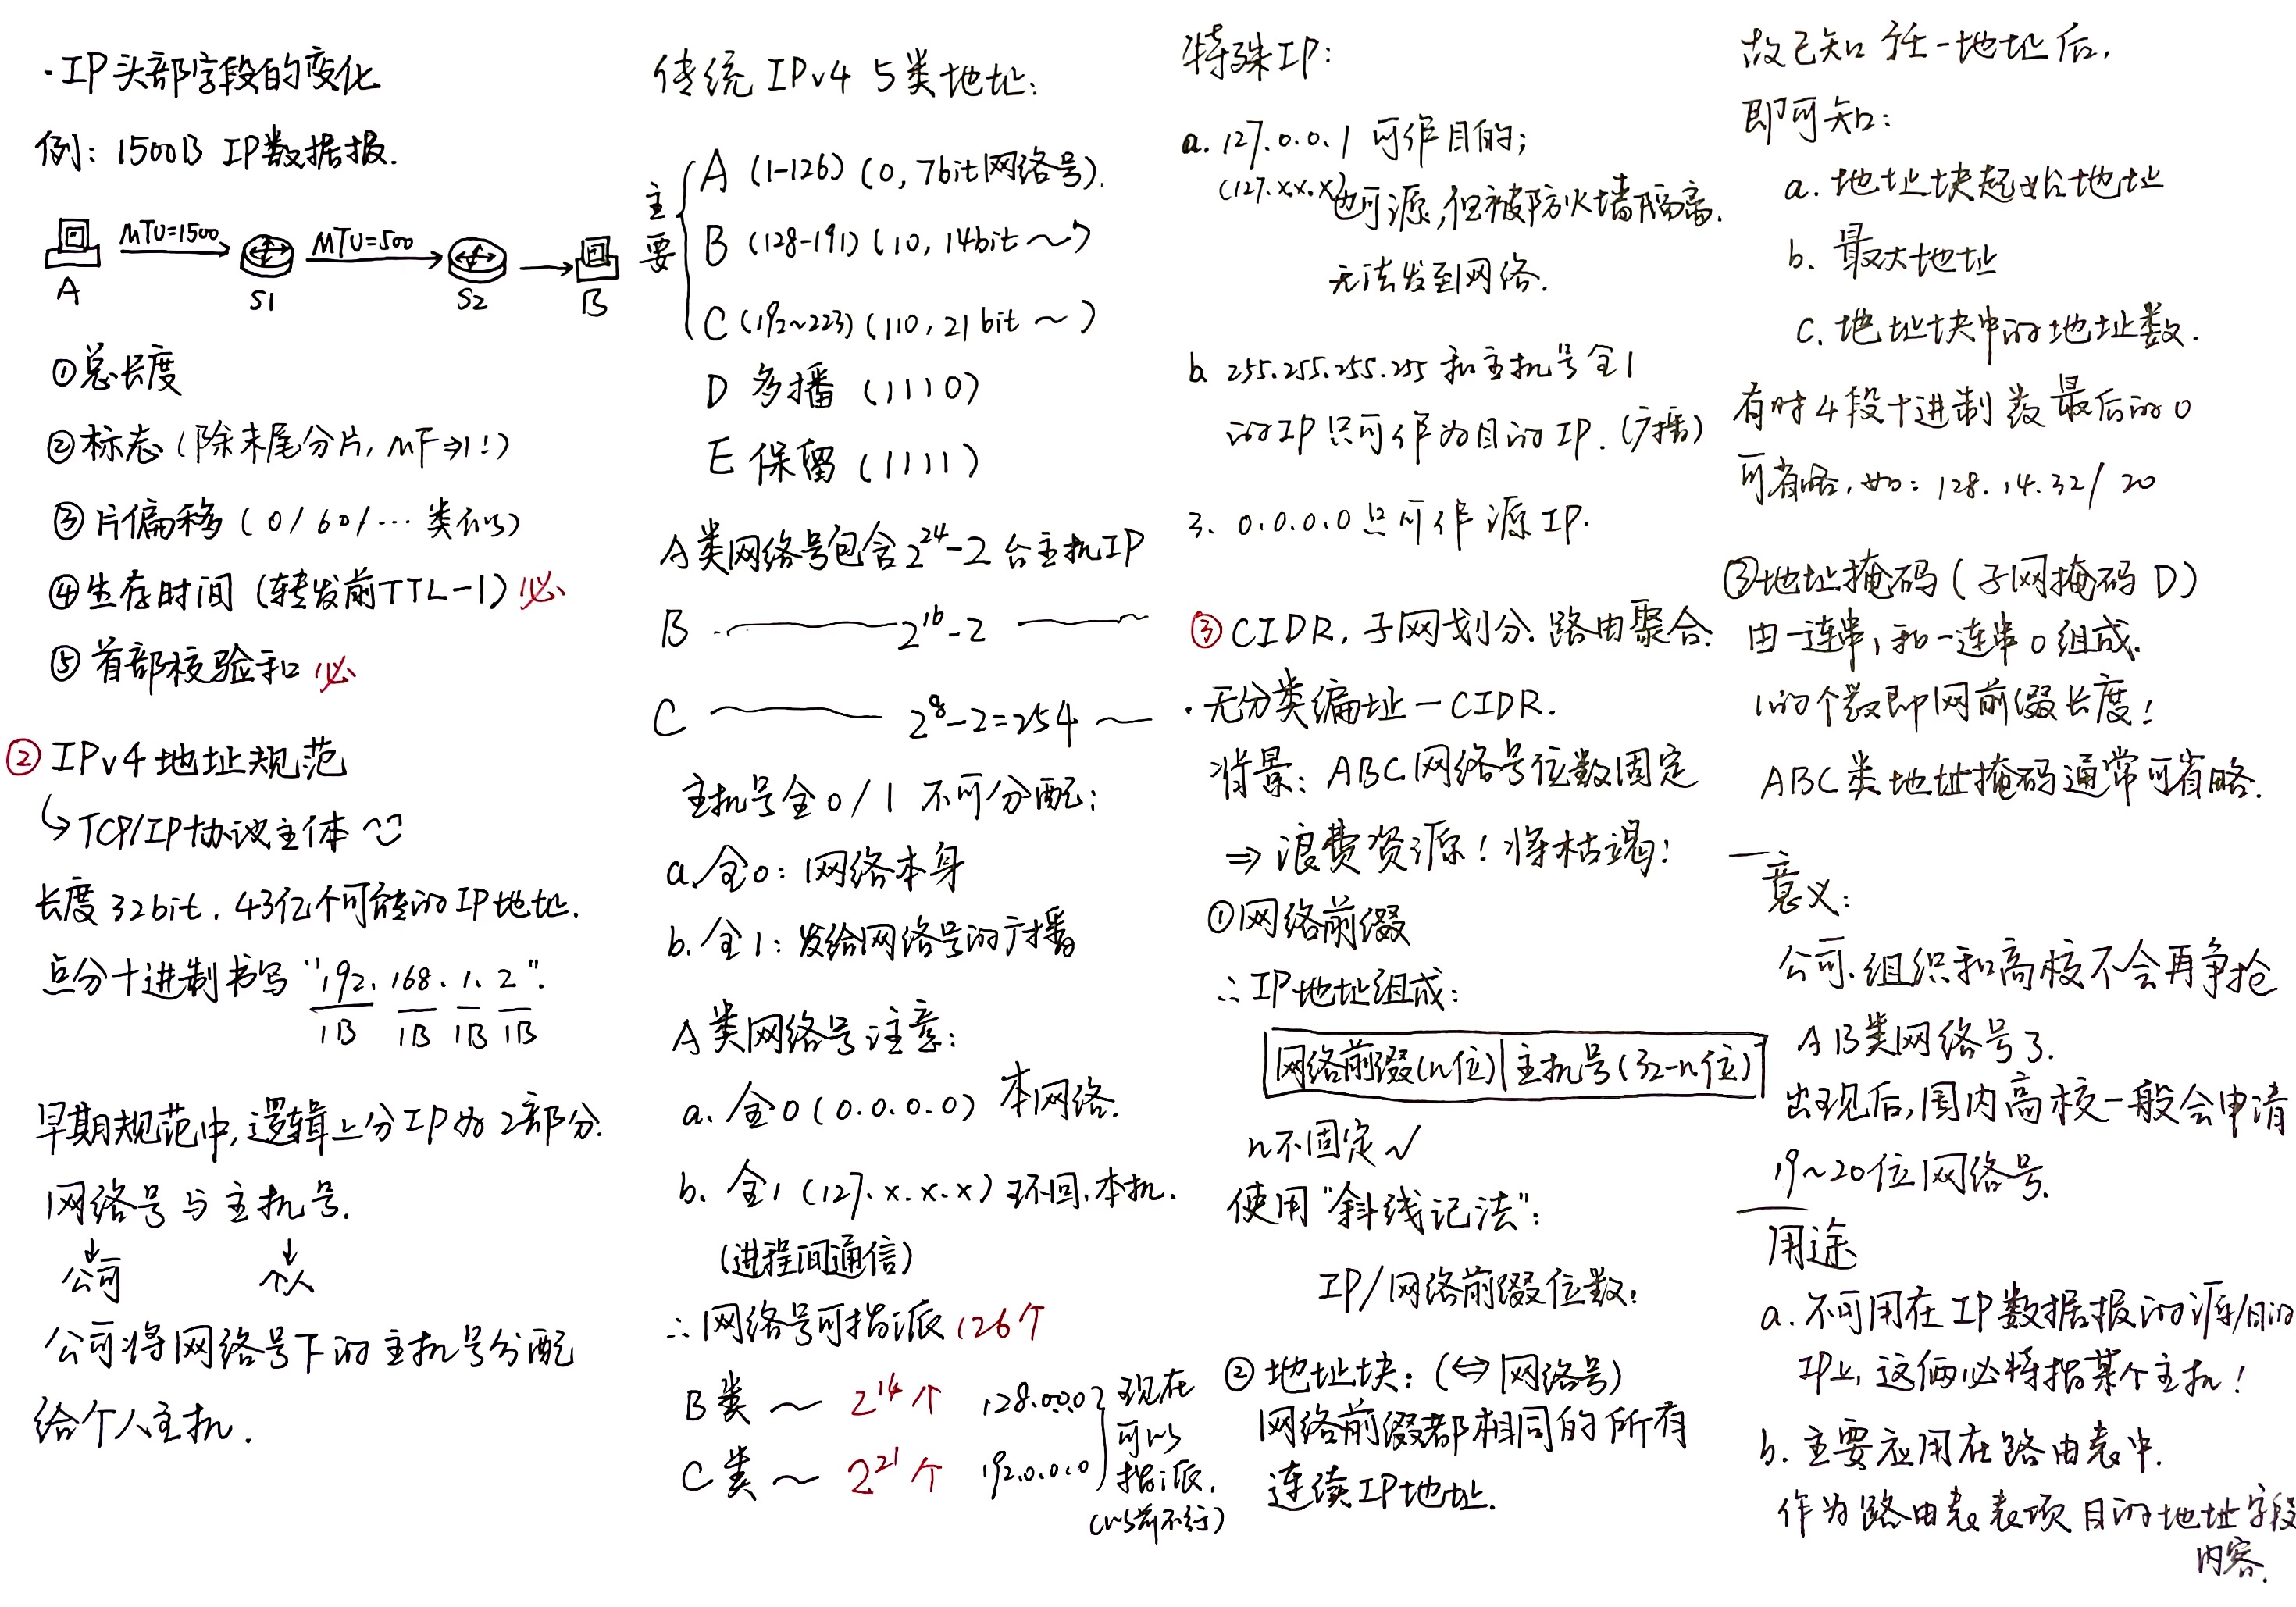 ·IP头部字段的变化
例：1500B IP数据报.
MTU=1500 MTU=500
A S1 S2 B
①总长度
②标志（除末尾分片，MF⇒1！）
③片偏移（0/60/… 类似）
④生存时间（转发前TTL-1）必
⑤首部校验和 必
② IPv4地址规范
↳TCP/IP协议主体
长度32bit，43亿个可能的IP地址.
点分十进制书写“192.168.1.2”.
1B 1B 1B 1B
早期规范中,逻辑上分IP为2部分.
网络号与主机号.
↓ ↓
公司 个人
公司将网络号下的主机号分配
给个人主机.
传统IPv4 5类地址：
主要
A（1-126）（0，7bit网络号）.
B（128-191）（10，14bit～）
C（192~223）（110，21bit～）
D 多播（1110）
E 保留（1111）
A类网络号包含2^24-2台主机IP
B —— 2^16-2 ——
C —— 2^8-2=254 ～
主机号全0/1 不可分配：
a.全0：网络本身
b.全1：发给网络号的广播
A类网络号注意：
a. 全0（0.0.0.0）本网络.
b. 全1（127.x.x.x）环回,本机.
（进程间通信）
∴网络号可指派126个
B类～ 2^14个 128.0.0.0
C类～ 2^21个 192.0.0.0
现在
可以
指派.
（以前不行）
特殊IP：
a. 127.0.0.1 可作目的；
（127.x.x.x）也可源,但被防火墙隔离.
无法发到网络.
b. 255.255.255.255 和主机号全1
的IP只可作为目的IP.（广播）
3. 0.0.0.0 只可作源IP.
③ CIDR，子网划分.路由聚合.
·无分类编址—CIDR.
背景：ABC网络号位数固定
⇒ 浪费资源！将枯竭！
①网络前缀
∴IP地址组成：
网络前缀(n位)|主机号(32-n位)
n不固定√
使用“斜线记法”：
IP/网络前缀位数.
②地址块：（⇔网络号）
网络前缀都相同的所有
连续IP地址.
故已知任一地址后，
即可知：
a. 地址块起始地址
b. 最大地址
c. 地址块中的地址数.
有时4段十进制数最后的0
可省略，如：128.14.32/20
③地址掩码（子网掩码D）
由一连串1和一连串0组成.
1的个数即网前缀长度！
ABC类地址掩码通常可省略.
意义：
公司.组织和高校不会再争抢
AB类网络号了.
出现后,国内高校一般会申请
19~20位网络号.
用途
a. 不可用在IP数据报的源/目的
IP上,这俩必特指某个主机！
b. 主要应用在路由表中.
作为路由表表项目的地址字段
内容.